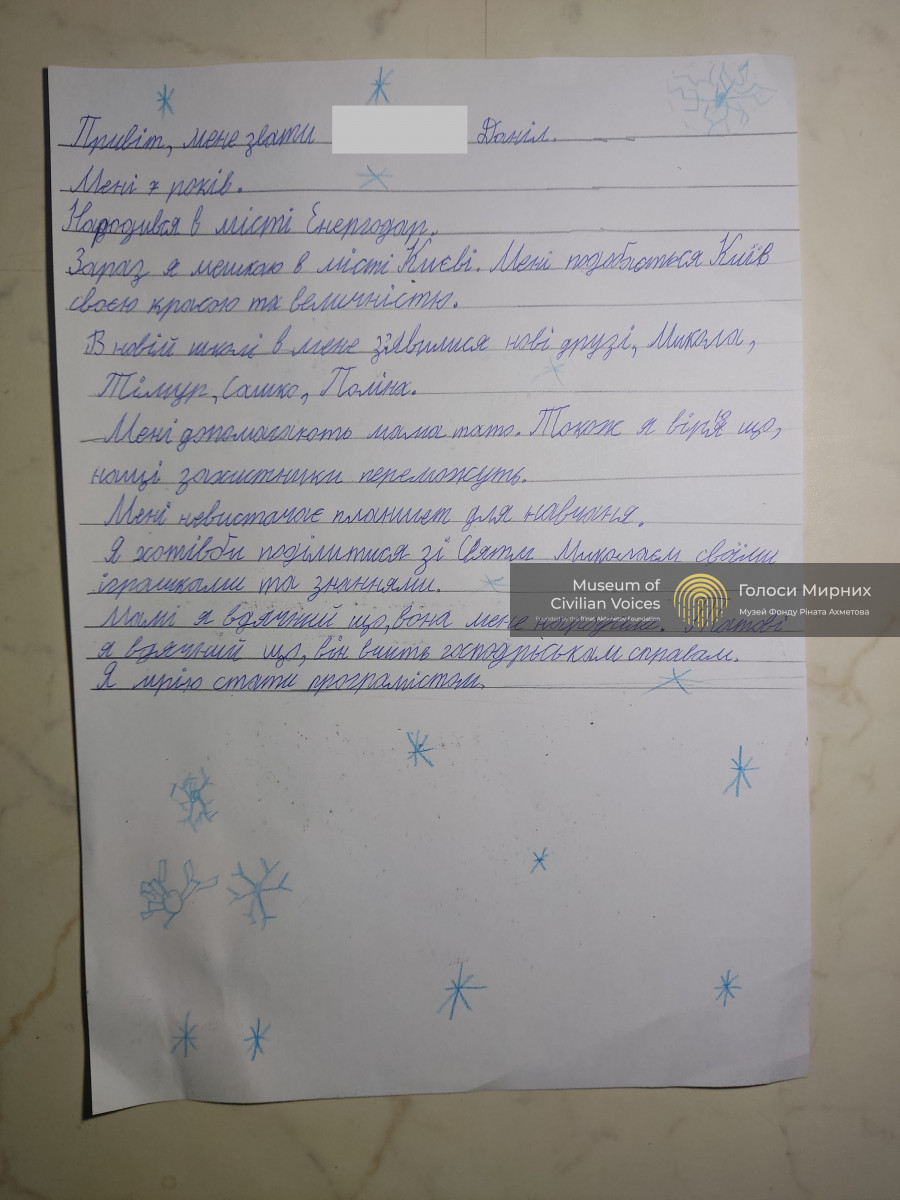 Привіт, мене звати Даніл.
Мені 7 років.
Народився в місті Енергодар.
Зараз я мешкаю в місті Києві. Мені подобається Київ
своєю красою та величністю.
В новій школі в мене з'явилися нові друзі, Микола,
Тімур, Сашко, Поліна.
Мені допомагають мама тато. Також я вірю що,
наші захистники переможуть.
Мені невистачає планшет для навчаня.
Я хотівби поділитися зі Святм Миколаєм своїми
іграшками та знаннями.
Museum of
Civilian Voices
Founded by the Rinat Akhmetov Foundation
Голоси Мирних
Музей Фонду Ріната Ахметова
Мамі я вдячний що, вона мене народила. Татові
я вдячний що, він вчить господрським справам.
Я мрію стати програмістом.